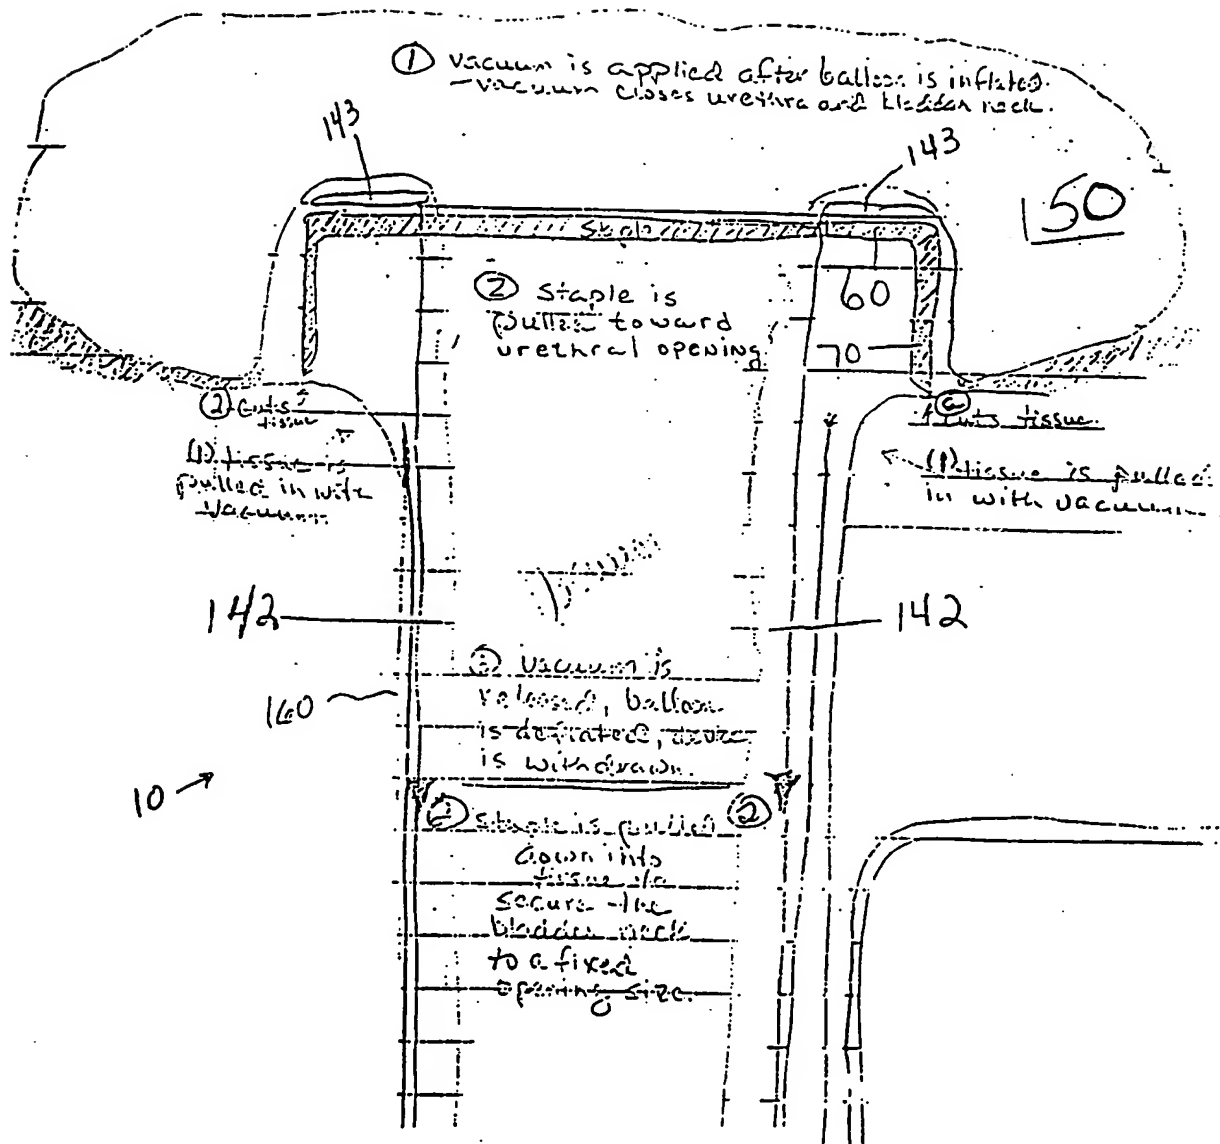 ① Vacuum is applied after balloon is inflated.
- Vacuum closes urethra and bladder neck.
143
143
150
Staple
② Staple is
pulled toward
urethral opening
60
70
② Cuts
tissue
(1) tissue is
pulled in with
vacuum
②
Cuts tissue.
(1) tissue is pulled
in with vacuum
142
142
③ Vacuum is
released, balloon
is deflated,
is withdrawn.
160
10
② Staple is pulled ②
down into
tissue to
secure the
bladder neck
to a fixed
opening size.